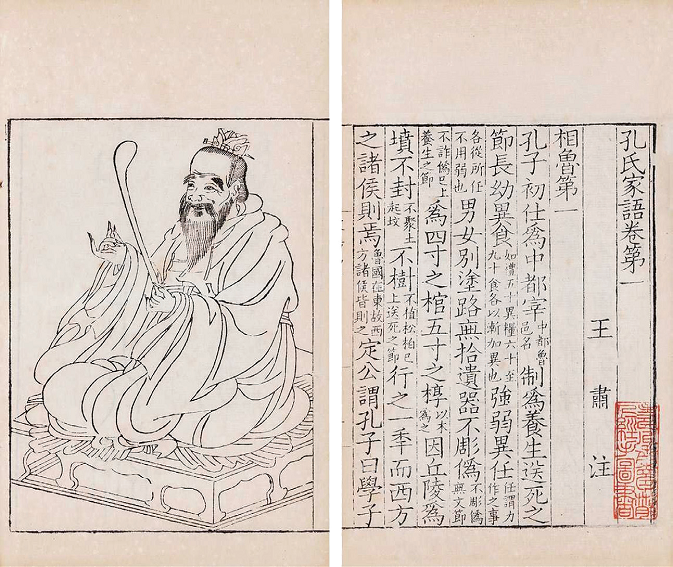 孔氏家語卷第一
王肅注
相魯第一
孔子初仕爲中都宰中都魯邑名制爲養生送死之
節長幼異食如禮五十異糧六十至九十食各以漸加異也強弱異任任謂力作之事
各從所任不用弱也男女別塗路無拾遺器不彫僞不彫僞無文節
不詐僞已上養生之節爲四寸之棺五寸之椁以木爲之因丘陵爲
墳不封不聚土起墳不樹不植松柏已上送死之節行之一季而西方
之諸侯則焉魯國在東故西方諸侯皆則之定公謂孔子曰學子